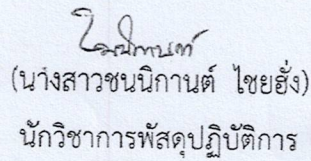 (นางสาวชนนิกานต์ ไชยฮั่ง)
นักวิชาการพัสดุปฏิบัติการ